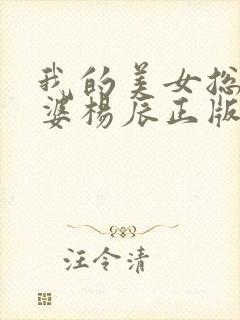 我的美女总
婆杨辰正版
汪令清